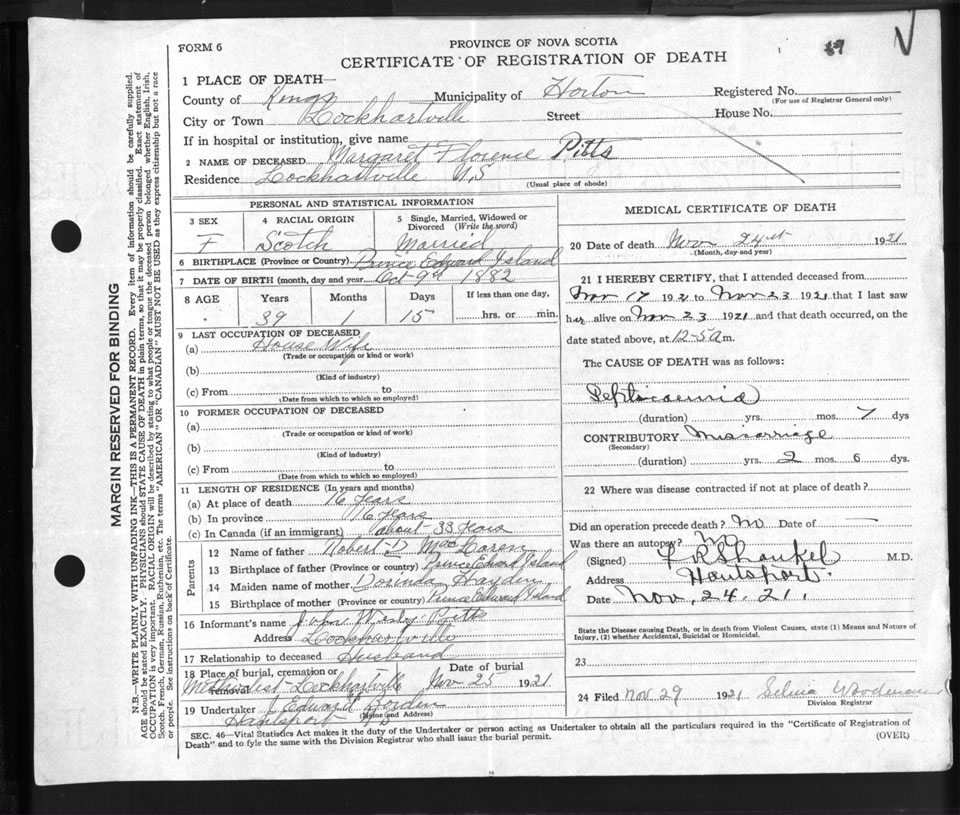 FORM 6
PROVINCE OF NOVA SCOTIA
CERTIFICATE OF REGISTRATION OF DEATH
1 PLACE OF DEATH—
County of Kings Municipality of Horton Registered No.
(For use of Registrar General only)
City or Town Lockhartville Street House No.
If in hospital or institution, give name
2 NAME OF DECEASED Margaret Florence Pitts
Residence Lockhartville N.S
(Usual place of abode)
PERSONAL AND STATISTICAL INFORMATION
3 SEX 4 RACIAL ORIGIN 5 Single, Married, Widowed or Divorced (Write the word)
F Scotch Married
6 BIRTHPLACE (Province or Country) Prince Edward Island
7 DATE OF BIRTH (month, day and year) Oct 9th 1882
8 AGE Years Months Days If less than one day,
39 1 15 hrs. or min.
9 LAST OCCUPATION OF DECEASED
(a) House Wife
(Trade or occupation or kind or work)
(b)
(Kind of industry)
(c) From to
(Date from which to which so employed)
10 FORMER OCCUPATION OF DECEASED
(a)
(Trade or occupation or kind or work)
(b)
(Kind of industry)
(c) From to
(Date from which to which so employed)
11 LENGTH OF RESIDENCE (In years and months)
(a) At place of death 16 Years
(b) In province 16 Years
(c) In Canada (if an immigrant) about 33 Years
Parents
12 Name of father Robert D MacLaren
13 Birthplace of father (Province or country) Prince Edward Island
14 Maiden name of mother Dorinda Hayden
15 Birthplace of mother (Province or country) Prince Edward Island
16 Informant's name John Wesly Pitts
Address Lockhartville
17 Relationship to deceased Husband
18 Place of burial, cremation or removal Date of burial
Methodist Lockhartville Nov 25 1921
19 Undertaker J Edward
(Name and Address)
Hantsport NS
MEDICAL CERTIFICATE OF DEATH
20 Date of death Nov 24st 1921
(Month, day and year)
21 I HEREBY CERTIFY, that I attended deceased from
Nov 17 1921 to Nov 23 1921 that I last saw
her alive on Nov 23 1921 and that death occurred, on the
date stated above, at 12-5 A m.
The CAUSE OF DEATH was as follows:
Septicaemia
(duration) yrs. mos. 7 dys
CONTRIBUTORY Miscarriage
(Secondary)
(duration) yrs. 2 mos. 6 dys.
22 Where was disease contracted if not at place of death?
Did an operation precede death? No Date of
Was there an autopsy? No
(Signed) M.D.
Address Hantsport.
Date Nov, 24. 21.
State the Disease causing Death, or in death from Violent Causes, state (1) Means and Nature of
Injury, (2) whether Accidental, Suicidal or Homicidal.
23
24 Filed Nov 29 1921 Selina Woodman
Division Registrar
SEC. 46—Vital Statistics Act makes it the duty of the Undertaker or person acting as Undertaker to obtain all the particulars required in the "Certificate of Registration of
Death" and to fyle the same with the Division Registrar who shall issue the burial permit. (OVER)
MARGIN RESERVED FOR BINDING
N.B.—WRITE PLAINLY WITH UNFADING INK—THIS IS A PERMANENT RECORD. Every item of information should be carefully supplied.
AGE should be stated EXACTLY. PHYSICIANS should STATE CAUSE OF DEATH in plain terms, so that it may be properly classified. Exact statement of
OCCUPATION is very important. RACIAL ORIGIN will be described by stating to what people or tongue the deceased person belonged, whether English, Irish,
Scotch, French, German, Russian, Ruthenian, etc. The terms "AMERICAN" or "CANADIAN" MUST NOT BE USED as they express citizenship but not a race
or people. See instructions on back of Certificate.